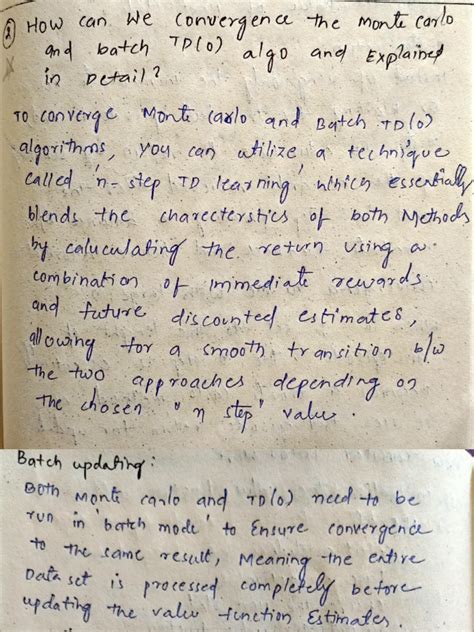 ② How can We convergence the monte carlo
and batch TD(0) algo and Explained
in Detail?
To converge Monte Carlo and Batch TD(0)
algorithms, you can utilize a technique
called 'n-step TD learning,' which essentially
blends the charecterstics of both Methods
by caluculating the return using a
combination of immediate rewards
and future discounted estimates,
allowing for a smooth transition b/w
the two approaches depending on
the chosen "n step" value.
Batch updating:
Both Monte carlo and TD(0) need to be
run in 'batch mode' to Ensure convergence
to the same result, Meaning the entire
Data set is processed completely before
updating the value function Estimates.